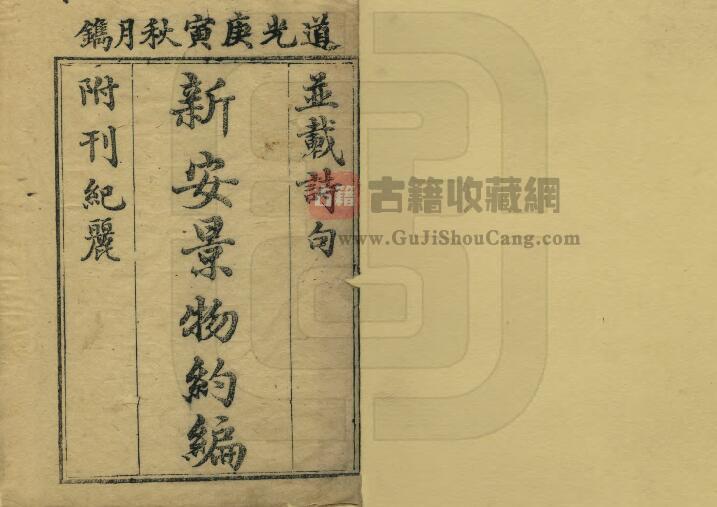 道光庚寅秋月鐫
並載詩句
新安景物約編
附刊紀麗
古籍
古籍收藏網
www.GuJiShouCang.com